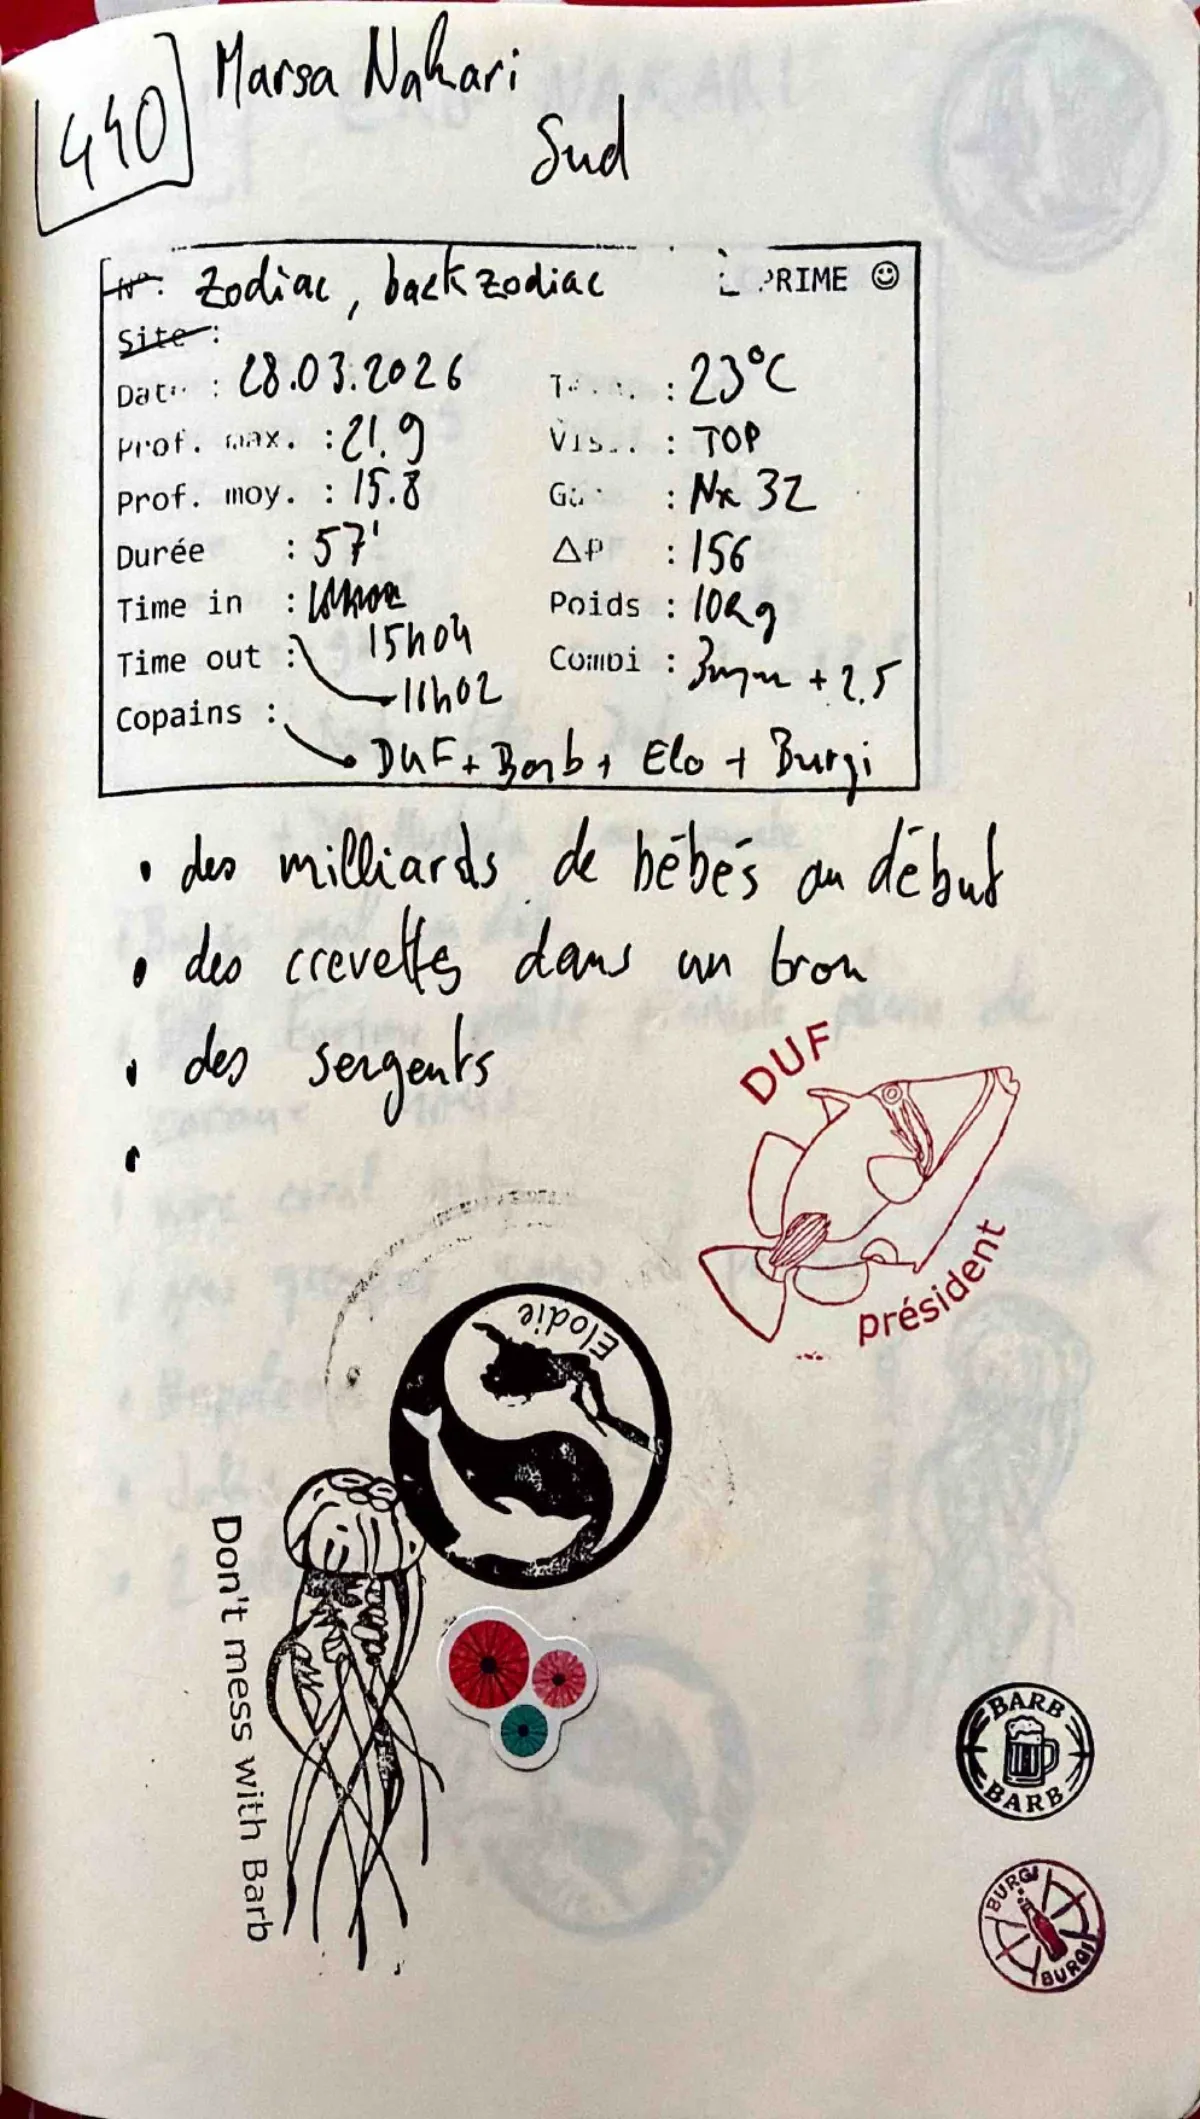 440
Marsa Nakari
Sud
N° : Zodiac, back zodiac PRIME ☺
Site :
Date : 28.03.2026 : 23°C
Prof. max. : 21.9 Vis. : TOP
Prof. moy. : 15.8 : Nx 32
Durée : 57' ΔP : 156
Time in : 15h04 Poids : 10kg
Time out : 16h02 Combi : + 2.5
Copains : DUF + Barb + Elo + Burgi
• des milliards de bébés au début
• des crevettes dans un trou
• des sergents
•
DUF
président
Elodie
Don't mess with Barb
BARB
BARB
BURGI
BURGI